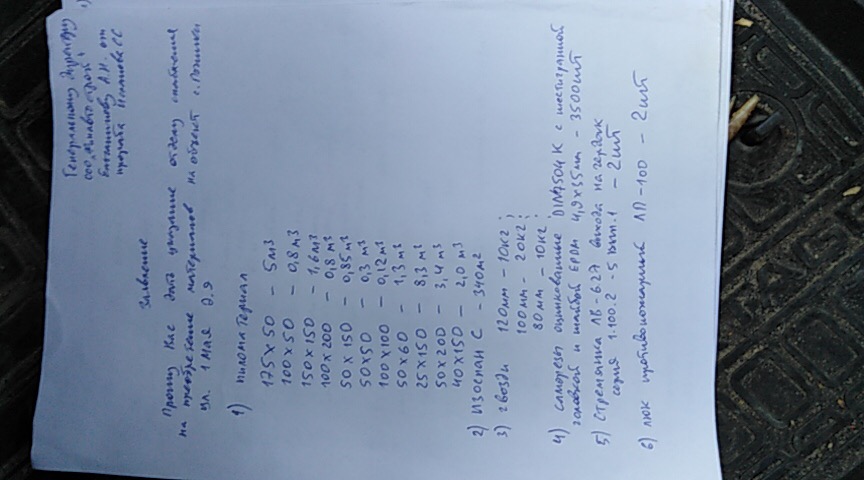 Генеральному директору
ООО
А.Н. от
прораба СС
Заявление
Прошу Вас дать указание отделу снабжения
на приобретение материалов на объект с.
ул. 1 Мая д.9
1) пиломатериал
175x50 – 5м3
100x50 – 0,8м3
150x150 – 1,6м3
100x200 – 0,8м3
50x150 – 0,85м3
50x50 – 0,3м3
100x100 – 0,12м3
50x60 – 1,3м3
25x150 – 8,3м3
50x200 – 3,4м3
40x150 – 2,0м3
2) Изоспан С – 340м2
3) гвозди 120мм – 10кг;
100мм – 20кг;
80мм – 10кг;
4) саморезы оцинкованные DIN7504K с шестигранной
головкой и шайбой EPDM 4,9x35мм – 3500шт
5) Стремянка ЛВ-6.27 выхода на чердак
серия 1.100.2-5 вып.1 – 2шт
6) люк противопожарный ЛП-100 – 2шт